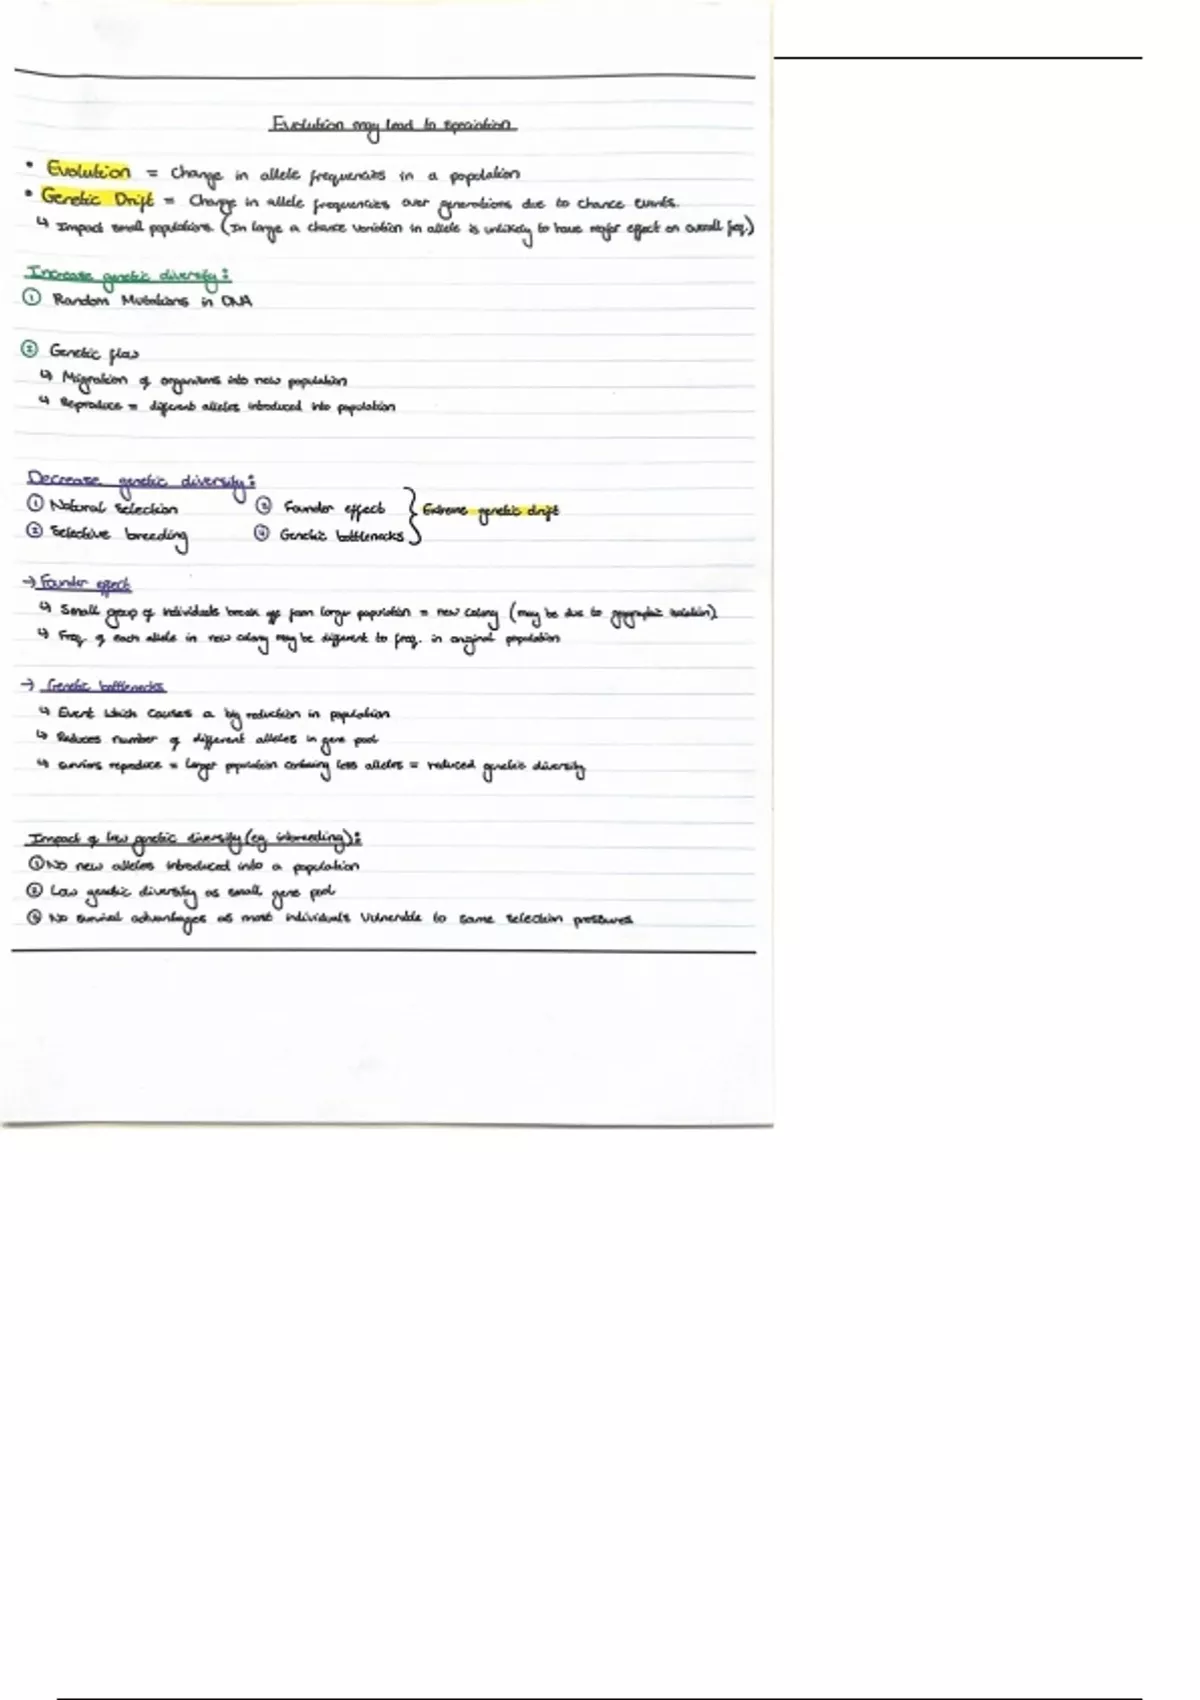 Evolution may lead to speciation
• Evolution = Change in allele frequencies in a population
• Genetic Drift = Change in allele frequencies over generations due to chance events.
↳ Impact small populations. (In large a chance variation in allele is unlikely to have major effect on overall freq.)
Increase genetic diversity:
① Random Mutations in DNA
② Genetic flow
↳ Migration of organisms into new population
↳ Reproduce = different alleles introduced into population
Decrease genetic diversity:
① Natural selection ③ Founder effect } Extreme genetic drift
② Selective breeding ④ Genetic bottlenecks
→ Founder effect
↳ Small group of individuals break off from larger population = new colony (may be due to geographic isolation).
↳ Freq. of each allele in new colony may be different to freq. in original population
→ Genetic bottlenecks
↳ Event which causes a big reduction in population
↳ Reduces number of different alleles in gene pool
↳ reproduce = larger population containing less alleles = reduced genetic diversity
Impact of low genetic diversity (eg. inbreeding):
① No new alleles introduced into a population
② Low genetic diversity as small gene pool
③ No survival advantages as most individuals vulnerable to same selection pressures